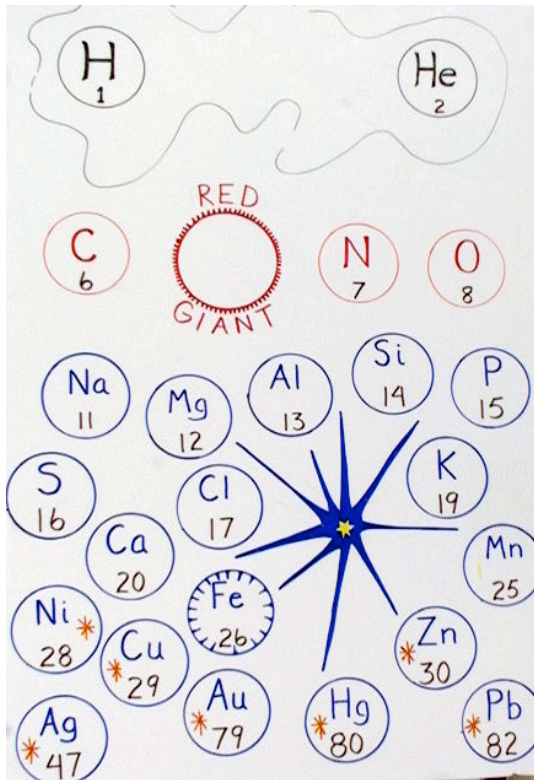 H
1
He
2
RED
GIANT
C
6
N
7
O
8
Na
11
Mg
12
Al
13
Si
14
P
15
S
16
Cl
17
K
19
Ca
20
Mn
25
Fe
26
Ni
28
Cu
29
Zn
30
Ag
47
Au
79
Hg
80
Pb
82